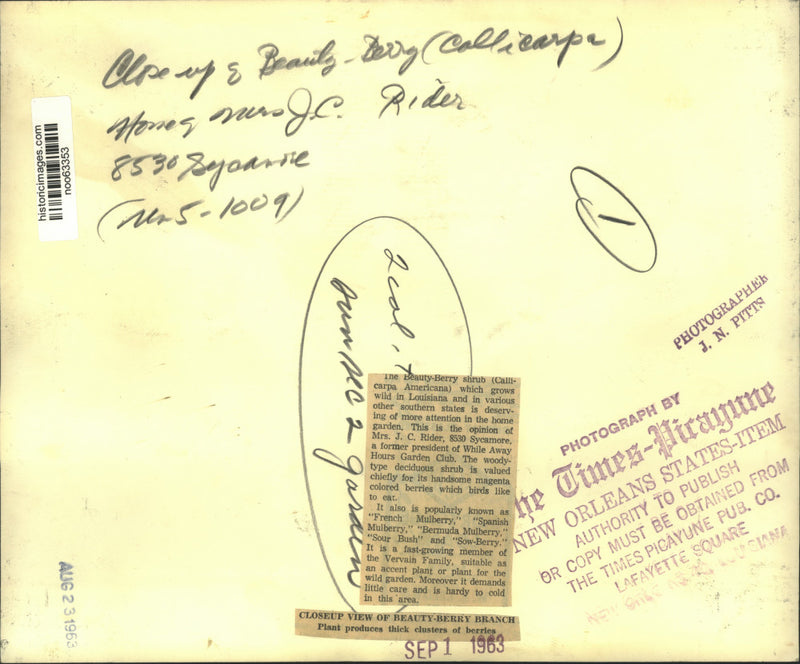 Close up of Beauty-Berry (Callicarpa)
Mrs J.C. Rider
8530 Sycamore
5-1009)
historicimages.com
noo63353
1
2 col.
Sun Sec 2 garden
PHOTOGRAPHER
J. N. PITTS
The Beauty-Berry shrub (Calli-
carpa Americana) which grows
wild in Louisiana and in various
other southern states is deserv-
ing of more attention in the home
garden. This is the opinion of
Mrs. J. C. Rider, 8530 Sycamore,
a former president of While Away
Hours Garden Club. The woody-
type deciduous shrub is valued
chiefly for its handsome magenta
colored berries which birds like
to eat.
It also is popularly known as
"French Mulberry," "Spanish
Mulberry," "Bermuda Mulberry,"
"Sour Bush" and "Sow-Berry."
It is a fast-growing member of
the Vervain Family, suitable as
an accent plant or plant for the
wild garden. Moreover it demands
little care and is hardy to cold
in this area.
CLOSEUP VIEW OF BEAUTY-BERRY BRANCH
Plant produces thick clusters of berries
PHOTOGRAPH BY
The Times-Picayune
NEW ORLEANS STATES-ITEM
AUTHORITY TO PUBLISH
OR COPY MUST BE OBTAINED FROM
THE TIMES PICAYUNE PUB. CO.
LAFAYETTE SQUARE
NEW ORLEANS, LOUISIANA
AUG 23 1963
SEP 1 1963